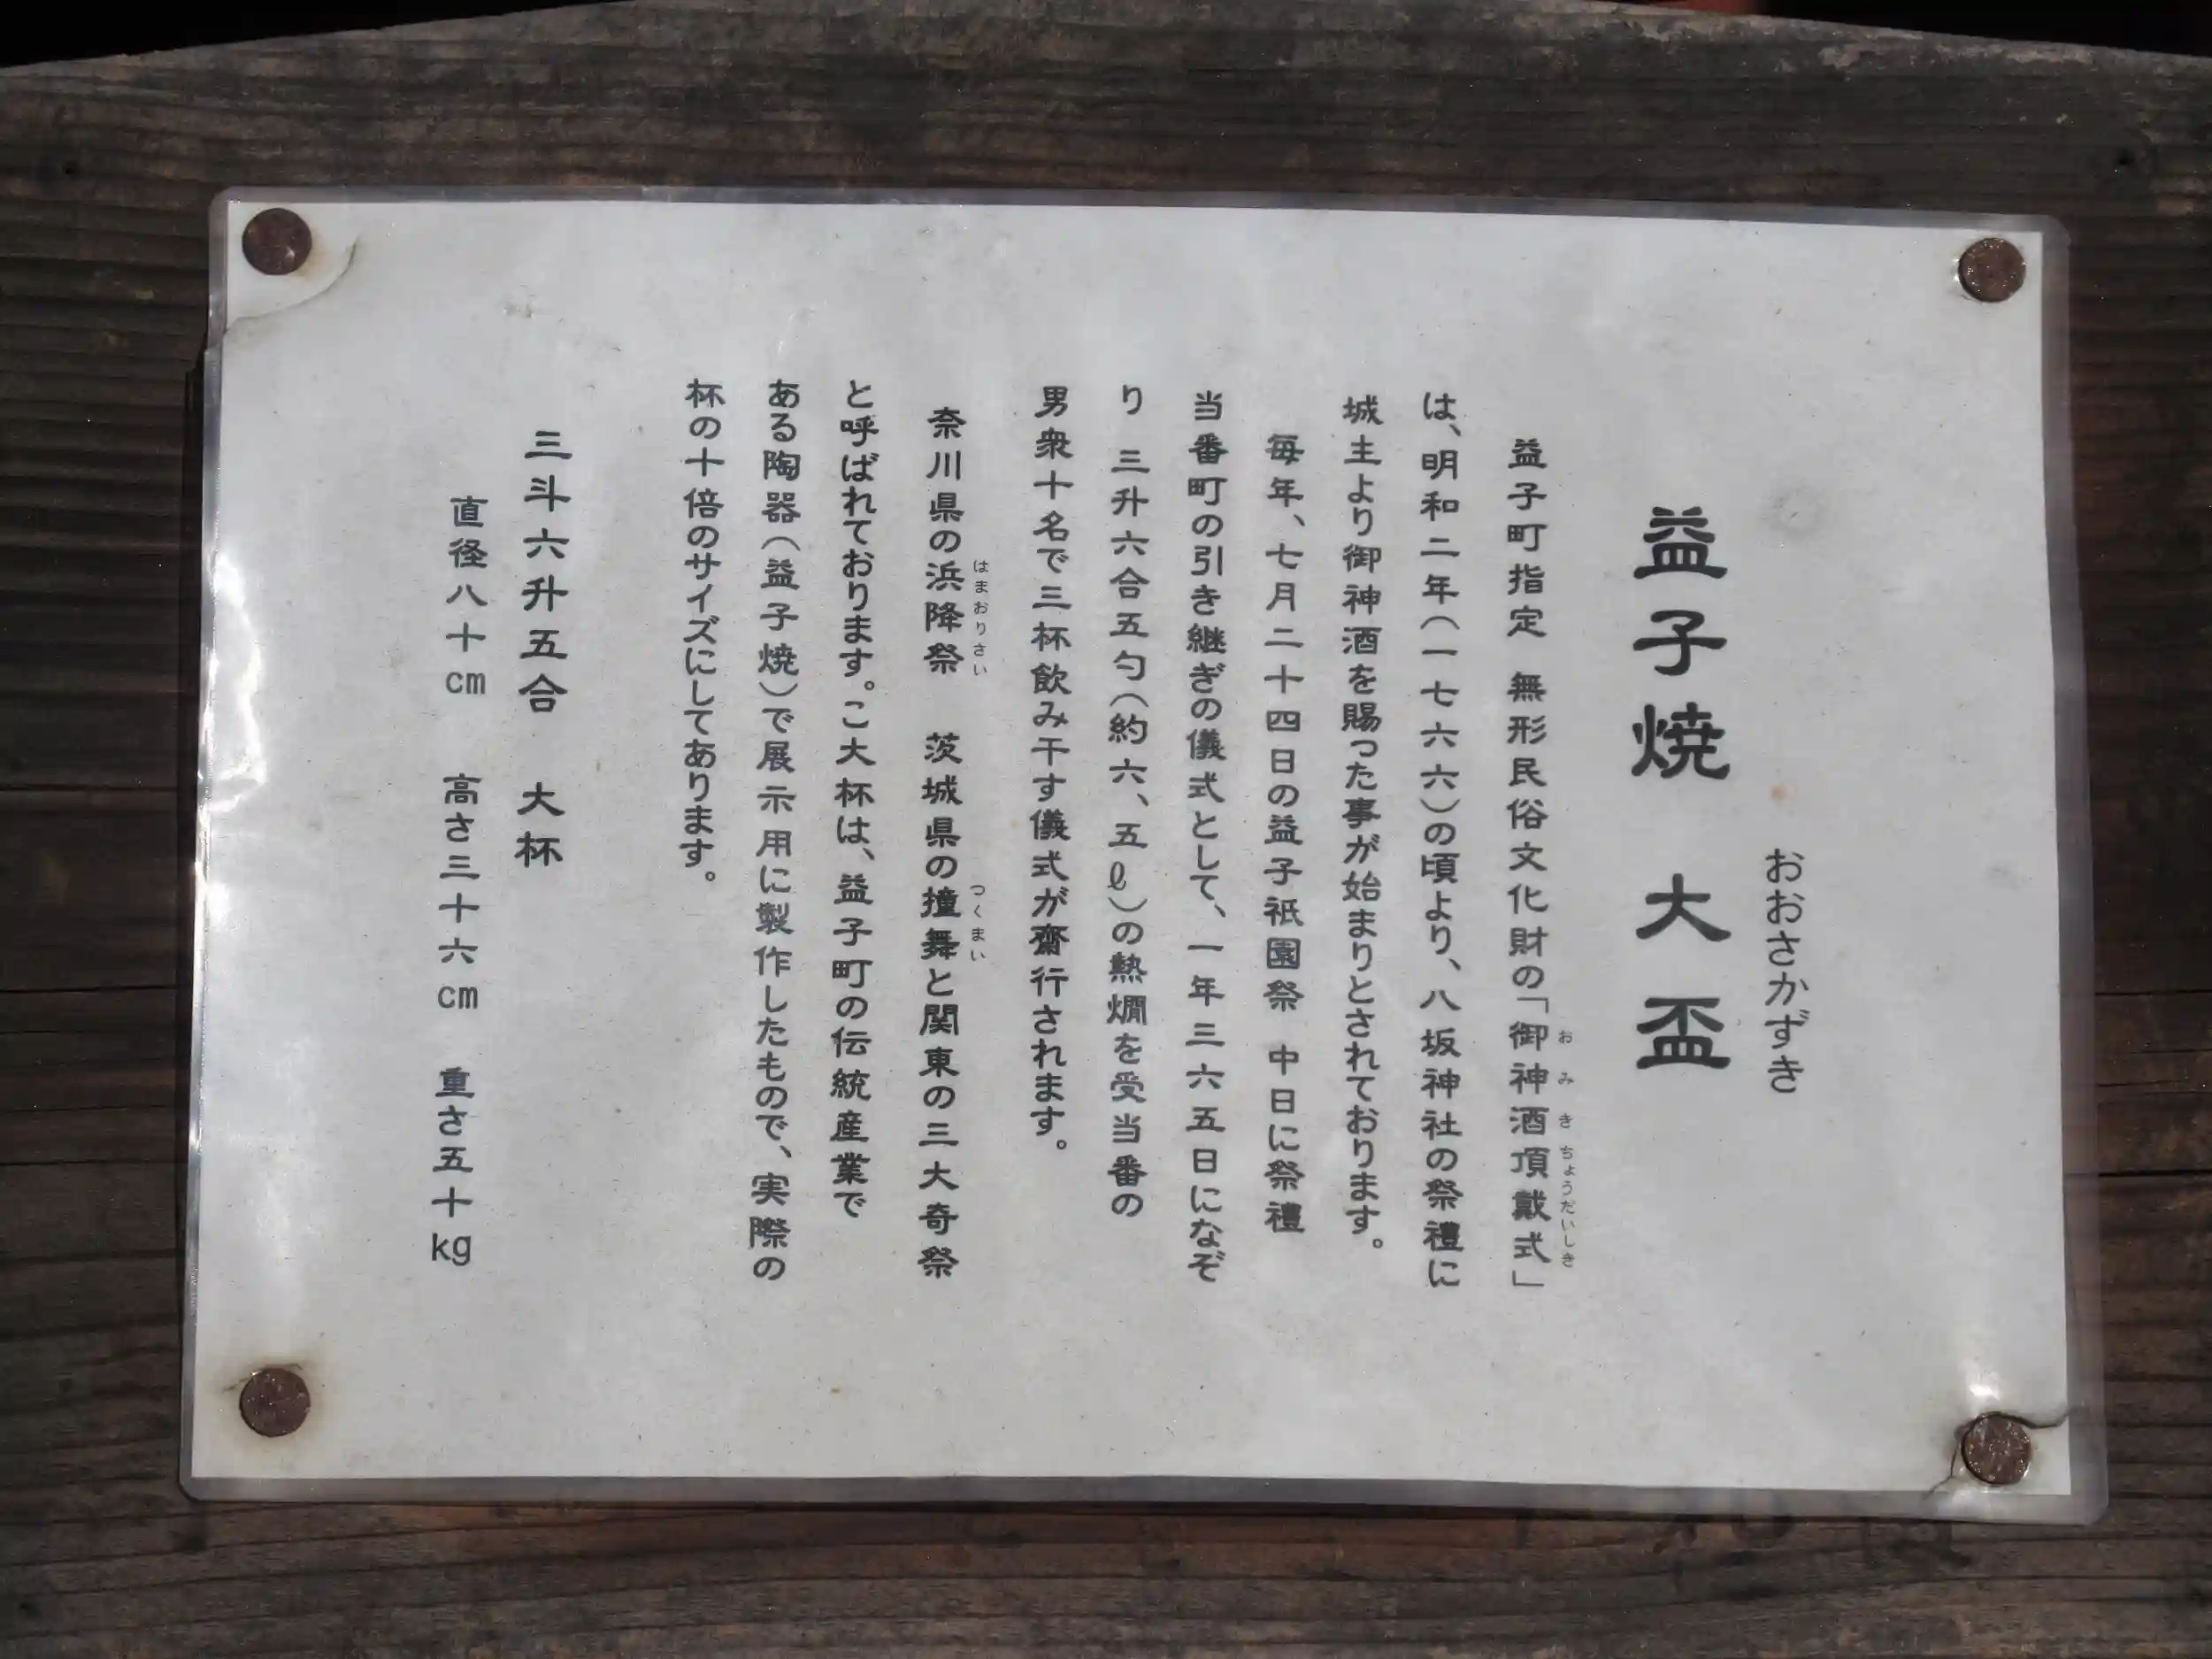 おおさかずき
益子焼 大盃
益子町指定 無形民俗文化財の「御神酒頂戴式」
おみきちょうだいしき
は、明和二年(一七六六)の頃より、八坂神社の祭禮に
城主より御神酒を賜った事が始まりとされております。
毎年、七月二十四日の益子祇園祭 中日に祭禮
当番町の引き継ぎの儀式として、一年三六五日になぞ
り 三升六合五勺(約六、五ℓ)の熱燗を受当番の
男衆十名で三杯飲み干す儀式が齋行されます。
はまおりさい つくまい
奈川県の浜降祭 茨城県の撞舞と関東の三大奇祭
と呼ばれております。こ大杯は、益子町の伝統産業で
ある陶器(益子焼)で展示用に製作したもので、実際の
杯の十倍のサイズにしてあります。
三斗六升五合 大杯
直径八十cm 高さ三十六cm 重さ五十kg